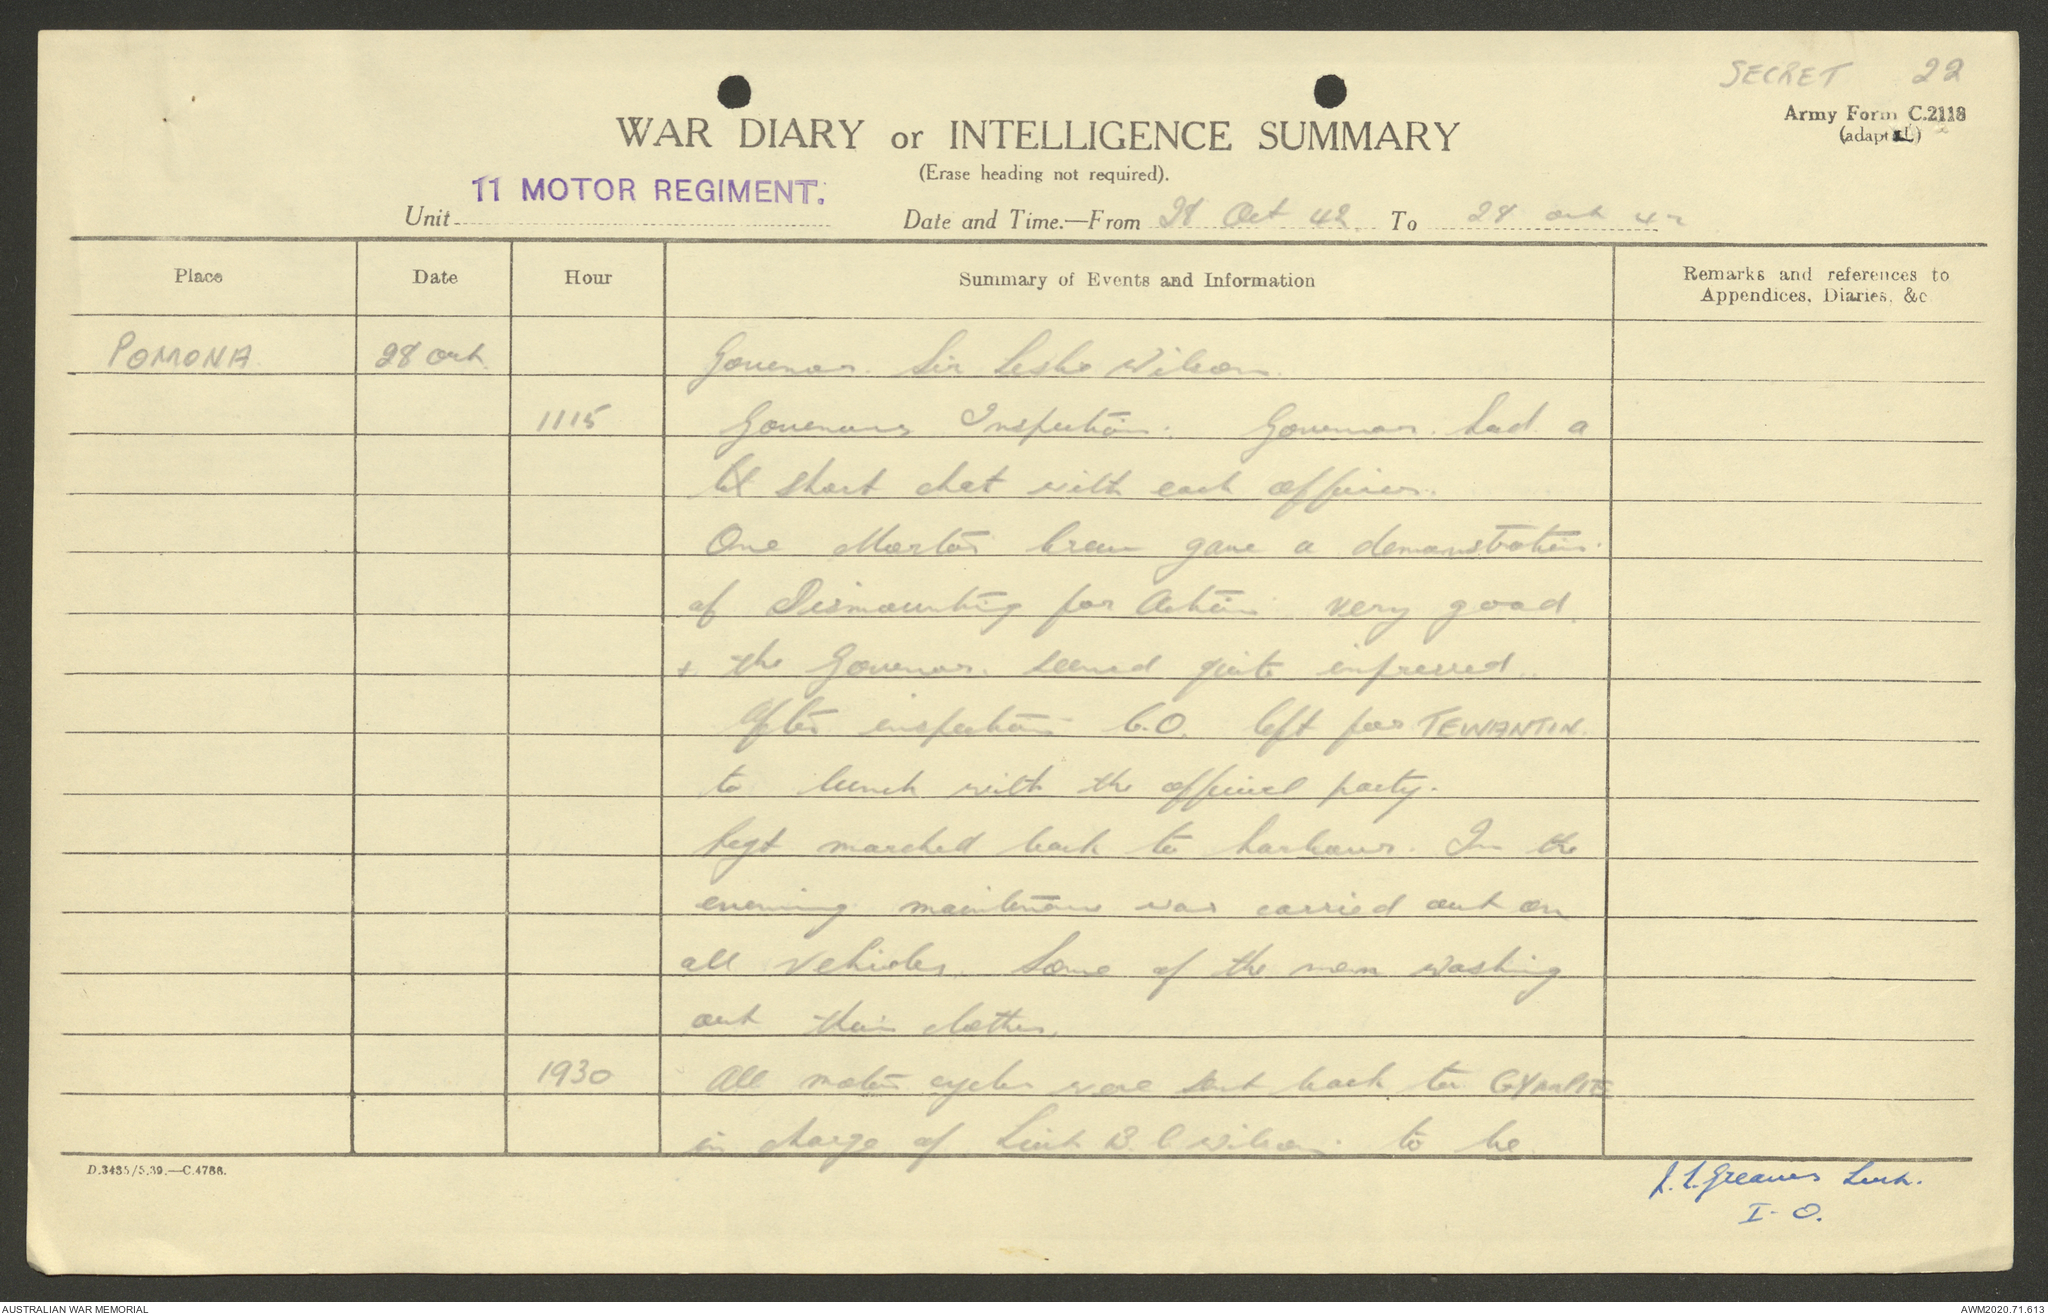 SECRET 22
Army Form C.2118
(adapted)
WAR DIARY or INTELLIGENCE SUMMARY
(Erase heading not required).
Unit 11 MOTOR REGIMENT.
Date and Time.—From 28 Oct 42. To 28 Oct 42
Place
Date
Hour
Summary of Events and Information
Remarks and references to
Appendices, Diaries, &c
POMONA 28 Oct. Govenor. Sir Leslie Wilson.
1115 Govenors Inspection. Govenor. had a
short chat with each officer.
One Mortar Crew gave a demonstration.
of Dismounting for Action very good
+ the Govenor. seemed quite impressed.
After inspection C.O. left for TEWANTIN.
to lunch with the official party.
Regt marched back to harbour. In the
evening maintenance was carried out on
all vehicles. Some of the men washing
out their clothes.
1930 All motor cycles were sent back to GYMPIE
in charge of Lieut B. C Wilson. to be
D.3435/5.39.—C.4788.
J. L. Greaves Lieut.
I-O.
AUSTRALIAN WAR MEMORIAL
AWM2020.71.613